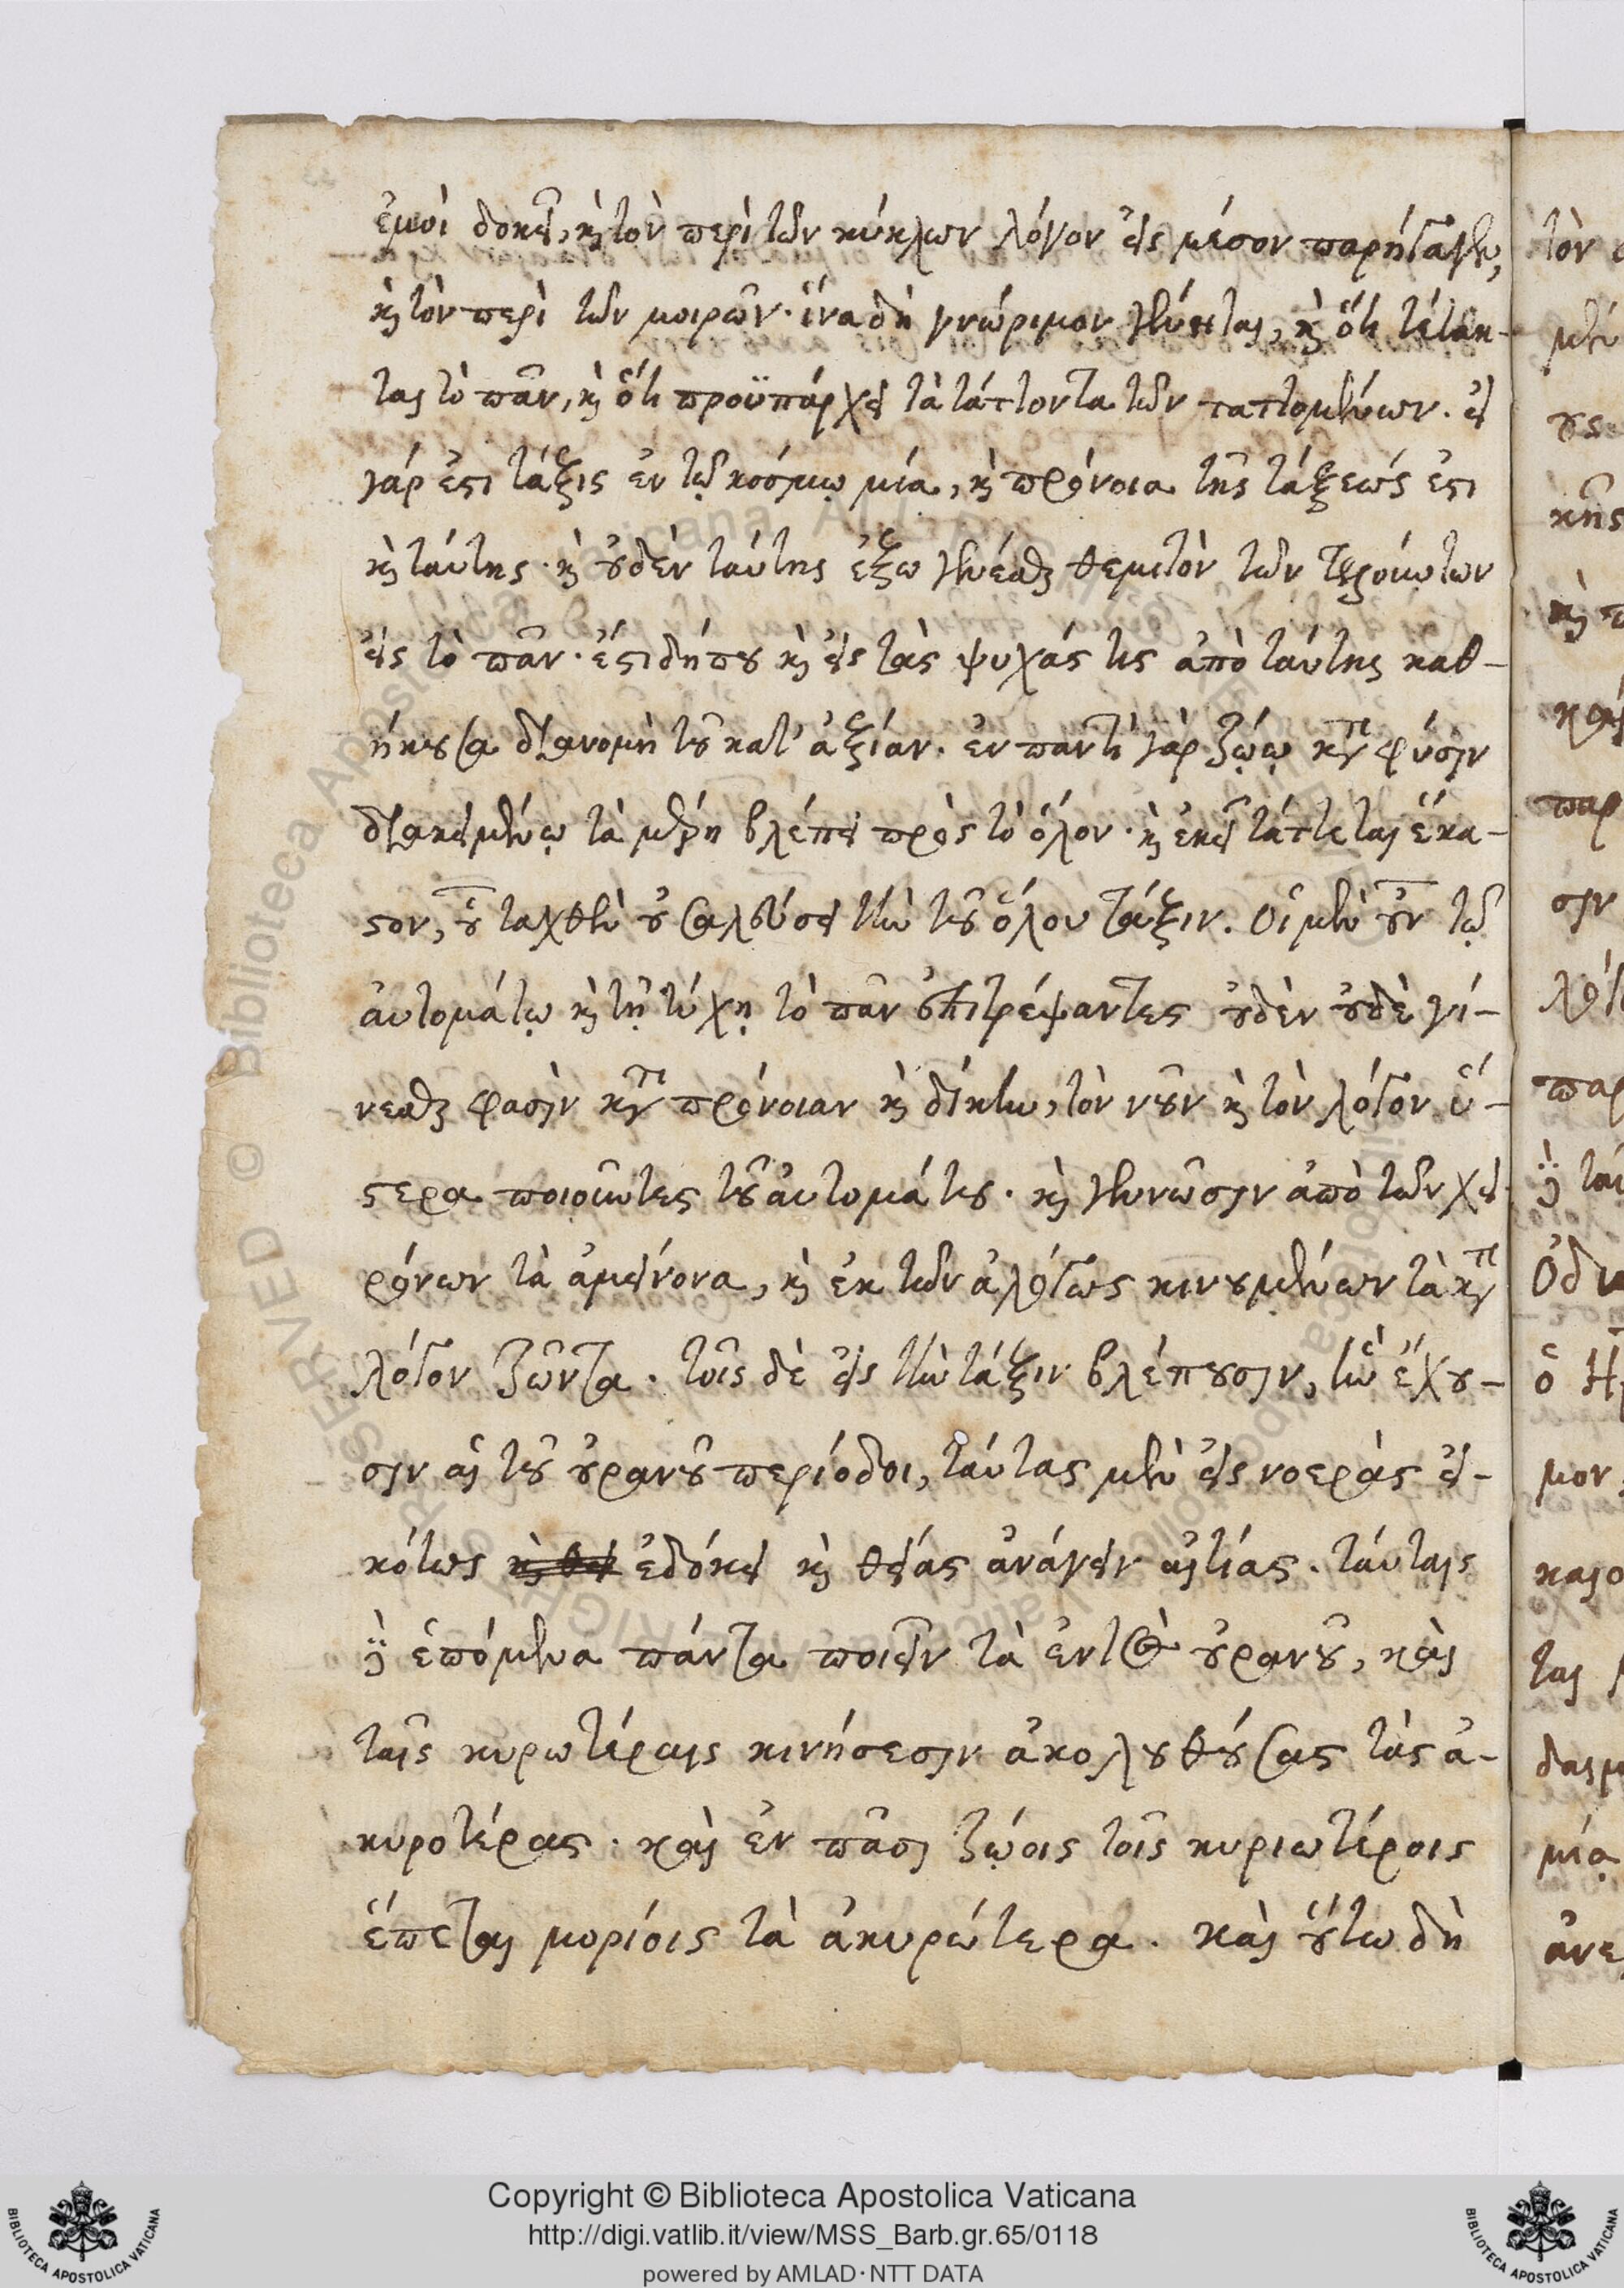 ἐμοὶ δοκεῖ, καὶ τὸν περὶ τῶν κύκλων λόγον εἰς μέσον παρήγαγεν,
καὶ τὸν περὶ τῶν μοιρῶν· ἵνα δὴ γνώριμον γένηται, καὶ ὅτι τέτακ-
ται τὸ πᾶν, καὶ ὅτι προϋπάρχει τὰ τάττοντα τῶν ταττομένων. εἰ
γάρ ἐστι τάξις ἐν τῷ κόσμῳ μία, καὶ πρόνοια τῆς τάξεώς ἐστι
καὶ ταύτης· καὶ οὐδὲν ταύτης ἔξω γενέσθαι θεμιτὸν τῶν
εἰς τὸ πᾶν· ἔστι δήπου καὶ εἰς τὰς ψυχάς τις ἀπὸ ταύτης καθ-
ήκουσα διανομὴ τοῦ κατ' ἀξίαν. ἐν παντὶ γὰρ ζώῳ κατὰ φύσιν
διακειμένῳ τὰ μέρη βλέπει πρὸς τὸ ὅλον· καὶ ἐκεῖ τάττεται ἕκα-
στον, οὗ ταχθὲν οὐ σαλεύσει τὴν τοῦ ὅλου τάξιν. Οἱ μὲν οὖν τῷ
αὐτομάτῳ καὶ τῇ τύχῃ τὸ πᾶν ἐπιτρέψαντες οὐδὲν οὐδὲ γί-
νεσθαι φασὶν κατὰ πρόνοιαν καὶ δίκην, τὸν νοῦν καὶ τὸν λόγον ὕ-
στερα ποιοῦντες τοῦ αὐτομάτου. καὶ γεννῶσιν ἀπὸ τῶν χει-
ρόνων τὰ ἀμείνονα, καὶ ἐκ τῶν ἀλόγως κινουμένων τὰ κατὰ
λόγον ζῶντα. τοῖς δὲ εἰς τὴν τάξιν βλέπουσιν, ἣν ἔχου-
σιν αἱ τοῦ οὐρανοῦ περίοδοι, ταύτας μὲν εἰς νοερὰς εἰ-
κότως καὶ θει ἐδόκει καὶ θείας ἀνάγειν αἰτίας. ταύταις
δὲ ἑπόμενα πάντα ποιεῖν τὰ ἐντὸς οὐρανοῦ, καὶ
ταῖς κυρωτέραις κινήσεσιν ἀκολουθούσας τὰς ἀ-
κυροτέρας. καὶ ἐν πᾶσι ζώοις τοῖς κυριωτέροις
ἕπεται μορίοις τὰ ἀκυρώτερα. καὶ οὕτω δὴ
Copyright © Biblioteca Apostolica Vaticana
http://digi.vatlib.it/view/MSS_Barb.gr.65/0118
powered by AMLAD·NTT DATA